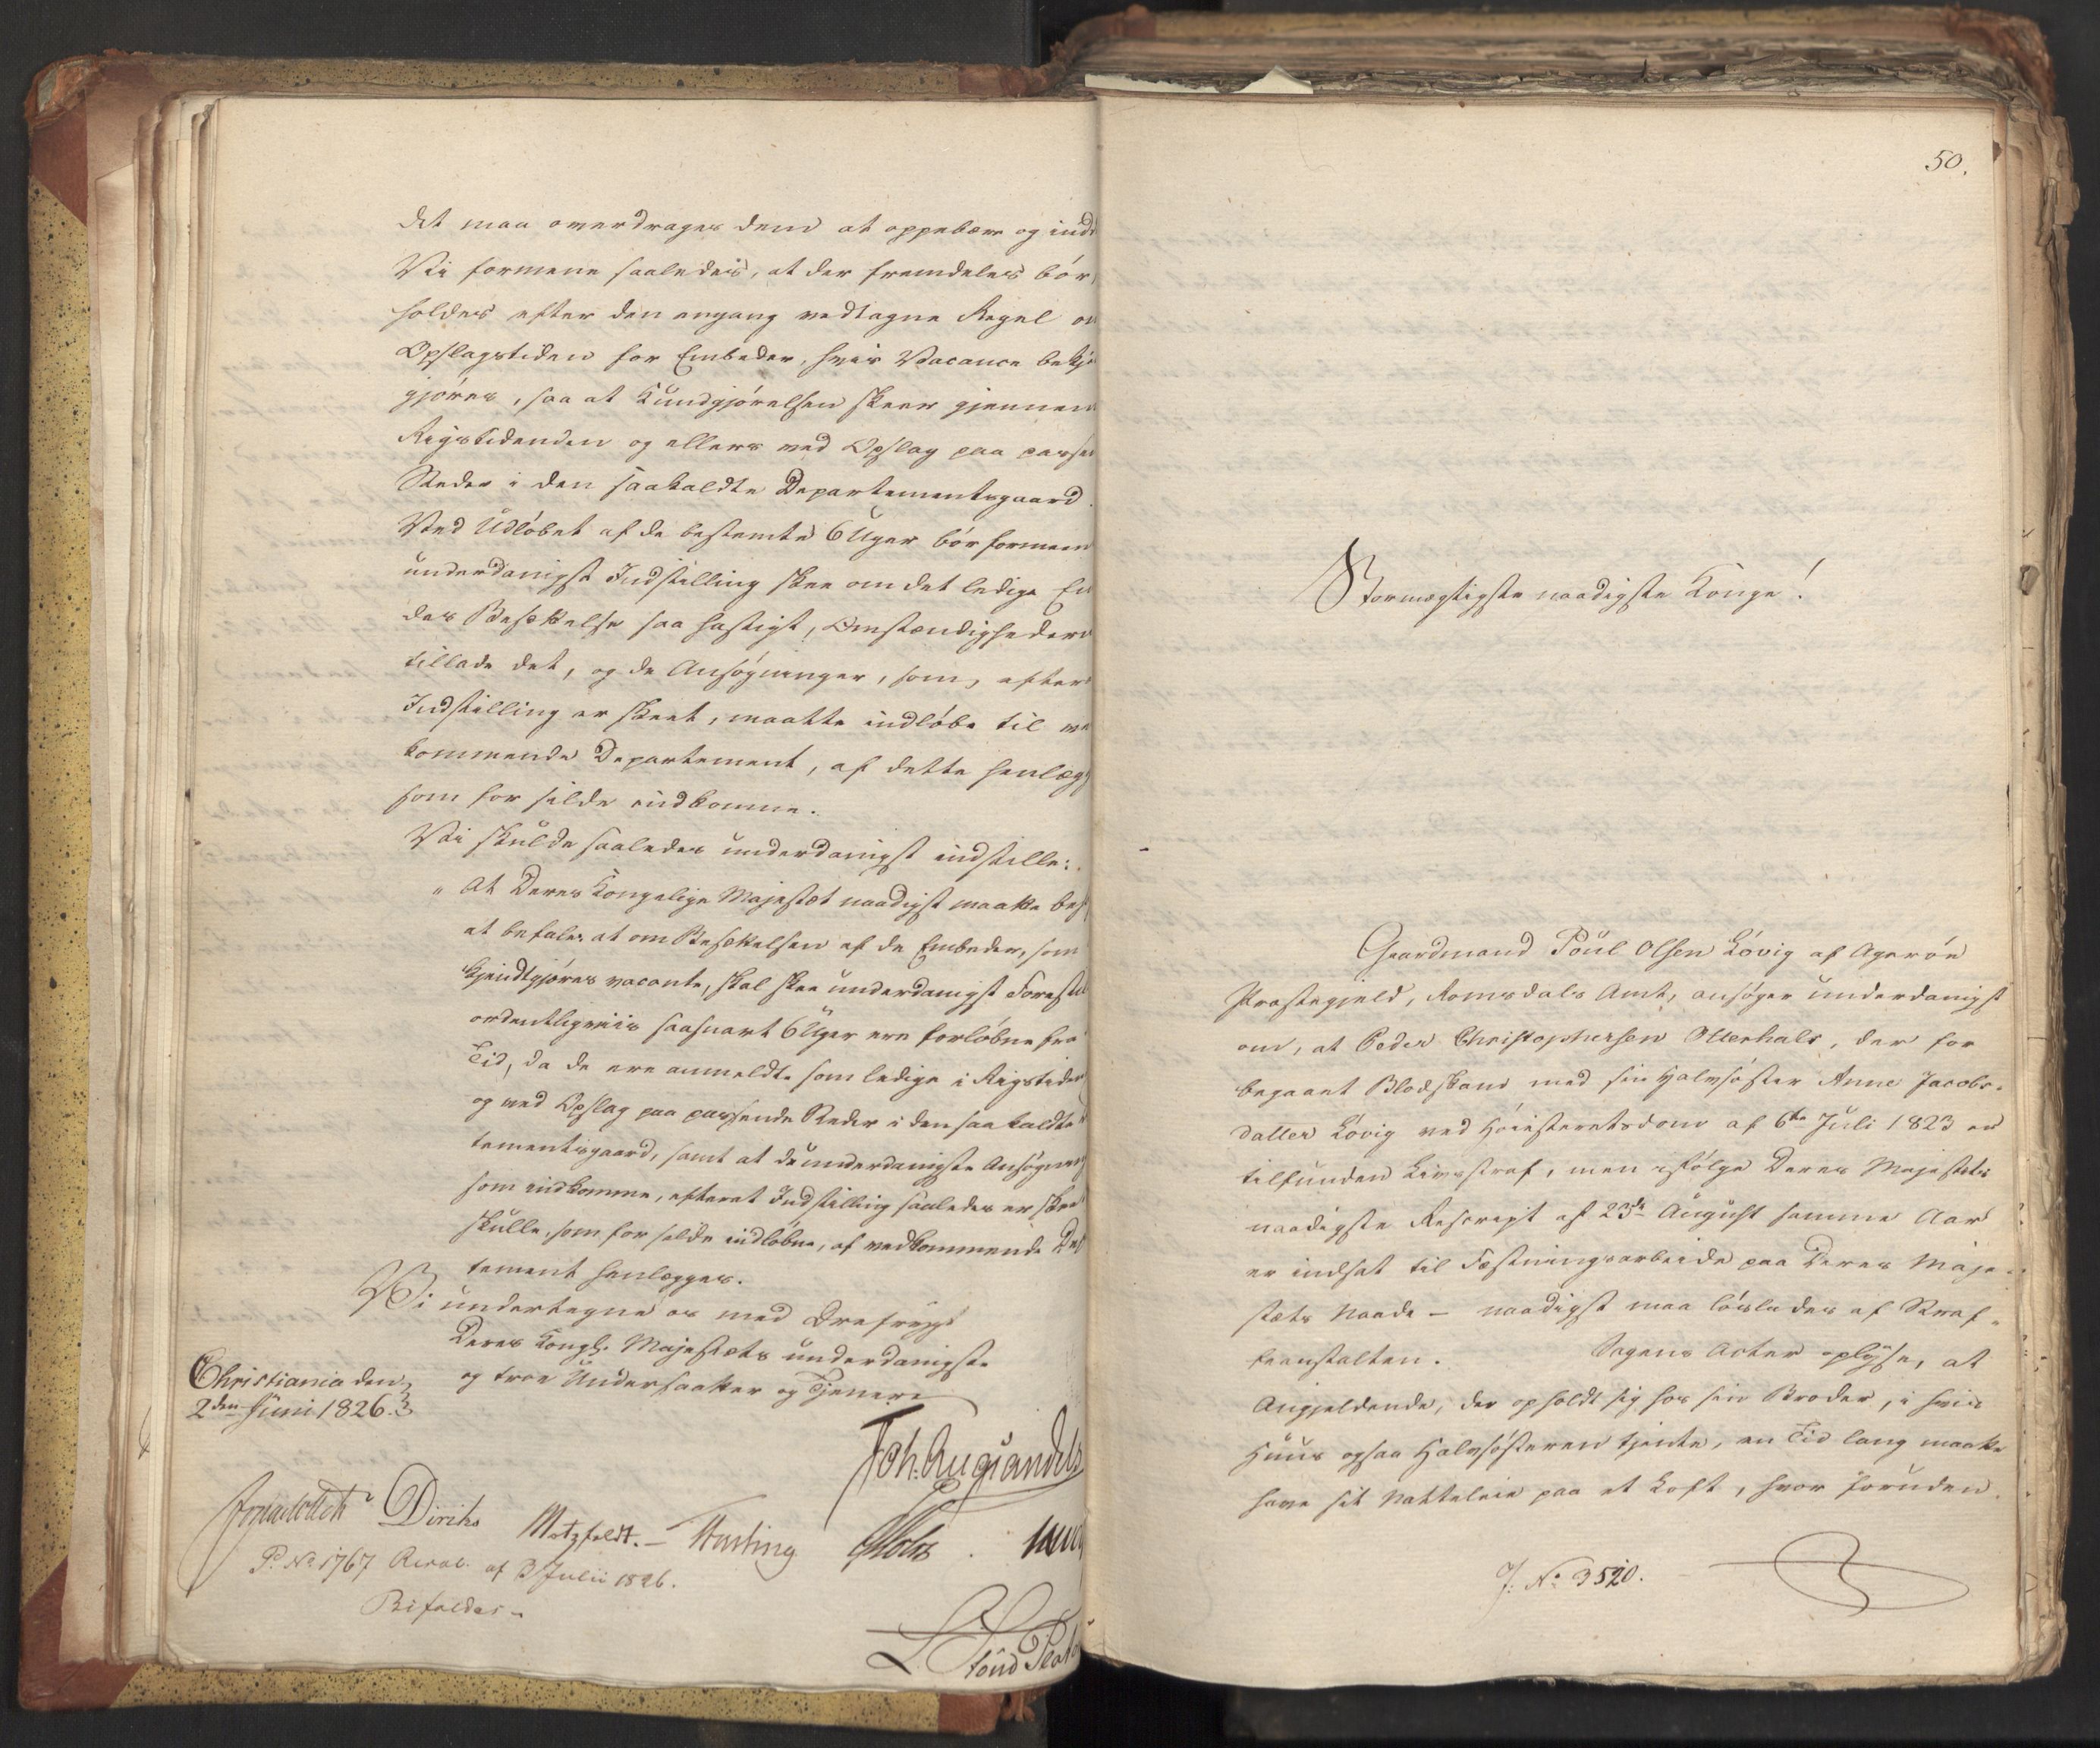 det maa overdrages dem at oppebære og ind
Vii formene saaledes, at der fremdeles bör
holdes efter den engang vedtagne Regel om
Opslagstiden for Embeder, hvis Vacance bekj
gjöres, saa at Kundgjörelsen skeer gjennem
Rigstidenden og ellers ved Opslag paa passe
Steder i den saakaldte Departementsgaard.
Ved Udlöbet af de bestemte 6 Uger bör formeen
underdanigst Indstilling skee om det ledige Em
des Besættelse saa hastigt, Omstændighederne
tillade det, og de Ansögninger, som, efterat
Indstilling er skeet, maatte indlöbe til ved
kommende Departement, af dette henlægg
som for silde indkomne.
Vii skulde saaledes underdanigst indstille:
" At Deres Kongelige Majestæt naadigst maatte beh
at befale, at om Besættelsen af de Embeder, som
kjendtgjöres vacante, skal skee underdanigst Forestil
ordentligviis saasnart 6 Uger ere forlöbne fra
Tid, da de ere anmeldte som ledige i Rigstiden
og ved Opslag paa passende Steder i den saakaldte
tementsgaard, samt at de underdanigste Ansögning
som indkomme, efterat Indstilling saaledes er skeet
skulle, som for silde indlöbne, af vedkommende De
tement henlægges.
Vi undertegne os med Ærefrygt
Deres Kongl. Majestæts underdanigste
og troe Undersaatter og Tjenere
Christiania den
2den Juni 1826.
Joh. Aug. Sandels
Jonas Collett Diriks Motzfeldt. Fasting Holst
P. No 1767 Resol. af 3 Julii 1826.
Bifaldes.
50.
Stormægtigste naadigste Konge!
Gaardmand Poul Olsen Lövig af Ageröe
Præstegjeld, Romsdals Amt, ansöger underdanigst
om, at Peder Christophersen Otterhals, der for
begaaet Blodskam med sin Halvsöster Anne Jacobs-
datter Lövig ved Höiesteretsdom af 6te Juli 1823 er
tilfunden Livsstraf, men ifölge Deres Majestæts
naadigste Rescript af 23de August samme Aar
er indsat til Fæstningsarbeide paa Deres Maje-
stæts Naade — naadigst maa löslades af Straf-
feanstalten. Sagens Acter oplyse, at
Angjeldende, der opholdt sig hos sin Broder, i hvis
Huus ogsaa Halvsösteren tjente, en Tid lang maatte
have sit Natteleie paa et Loft, hvor foruden
J: No 3520.